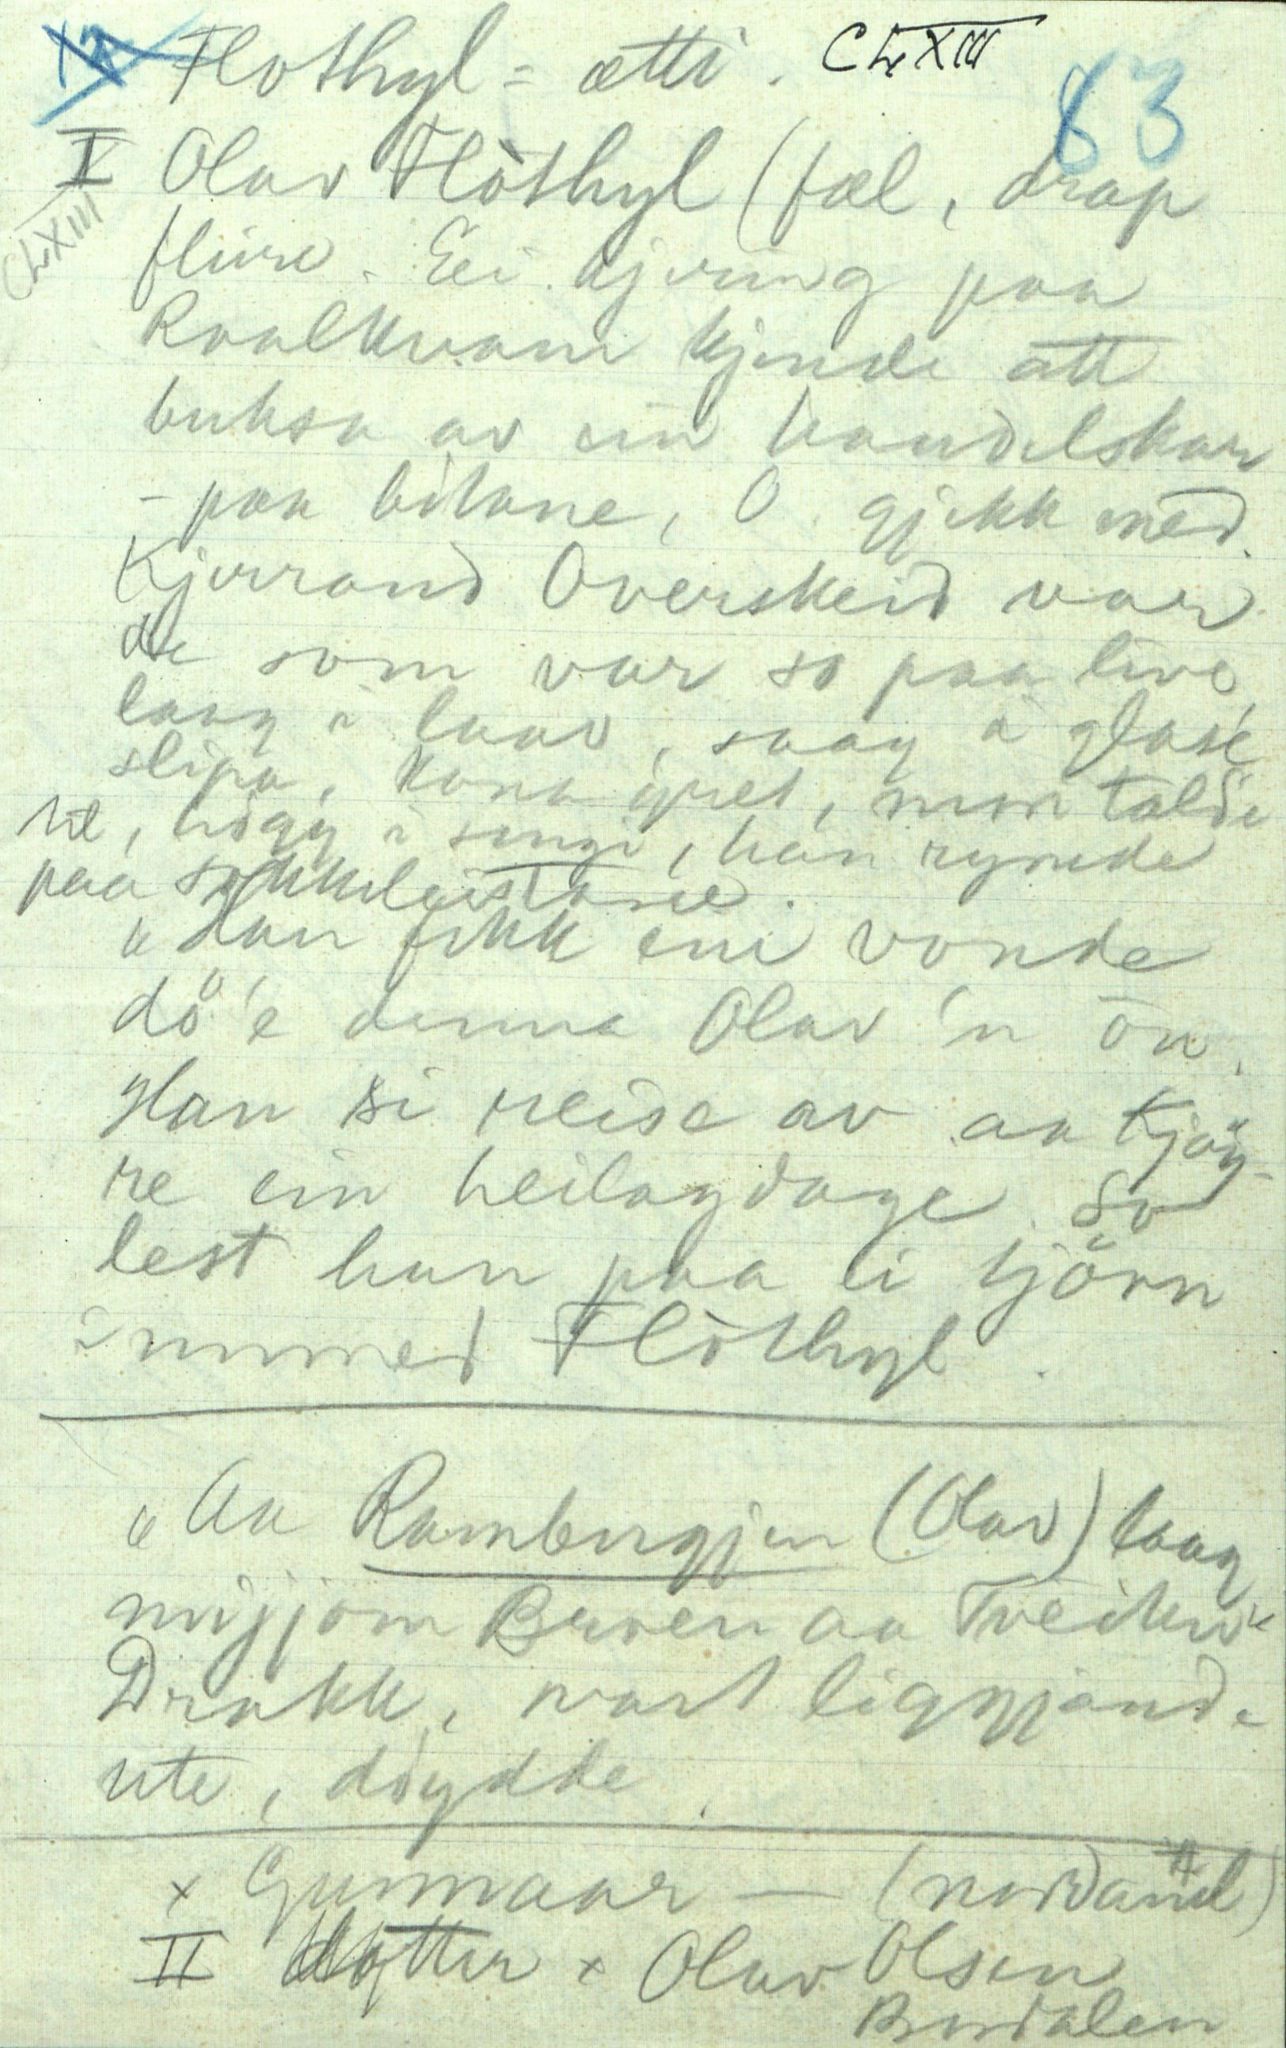 Flothyl-ætti. CLXIII
83
I Olav Flothyl (fæl, drap
CLXIII
fleire. Eei kjering paa
Roalkvam kjende att
buksa av ein handelskar
- paa bitane, O. gjekk med.
Kjerrand Overskeid var
de som var so paa live,
laag i laav, saag i glase
slipa, kona gret, men talde
ut, hogg i sengi, han rymde
paa sokkeleistane.
"Han fekk ein vonde
dö'e denna Olav'n ōn.
Han si reise av aa Kjöy-
re ein heilagdage. So
lest han paa ei tjörn
innmed Flothyl.
"Aa Rambergjen (Olav) laag
migjjom Bruen aa Tveitev
Drukk, vart liggjande
ute, döydde.
x Gunnaar — (nordantil)
II dotter x Olav Olsen
Bordalen